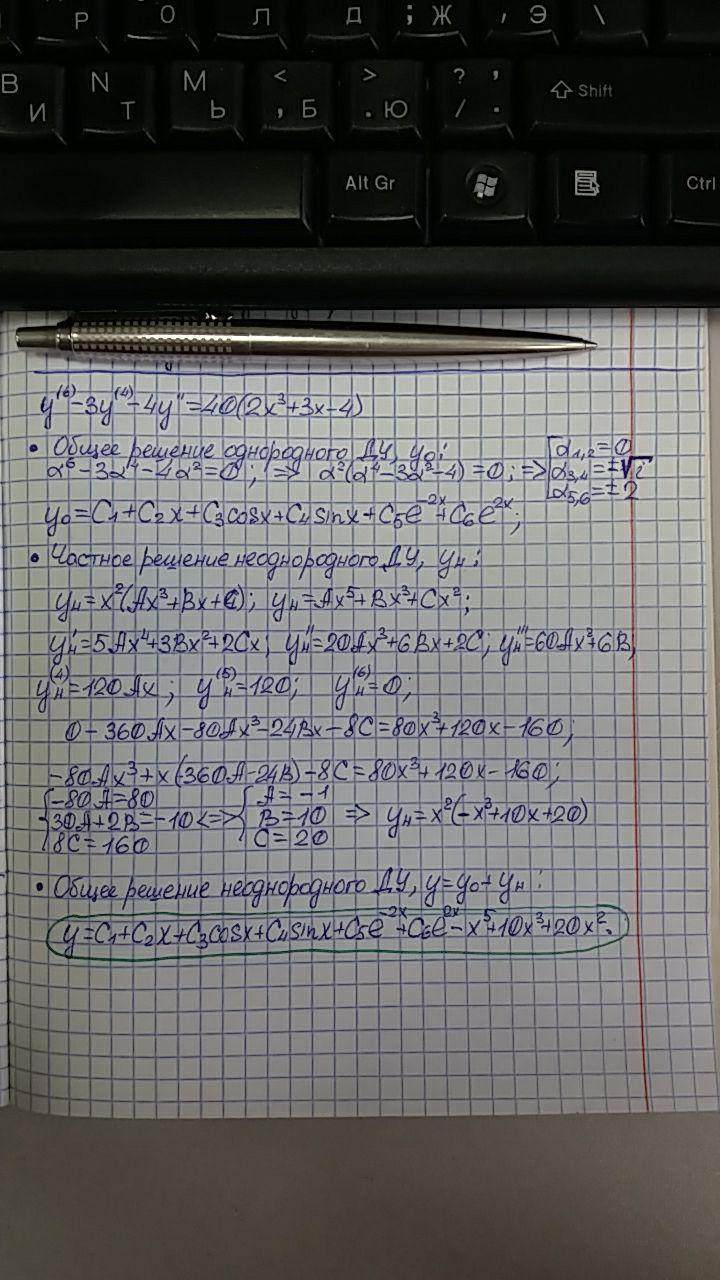 Р О Л Д ; Ж , Э \
В И N Т М Ь < , Б > . Ю ? / , . Shift
Alt Gr Ctrl
y⁽⁶⁾-3y⁽⁴⁾-4y''=40(2x³+3x-4)
• Общее решение однородного ДУ, y₀:
α⁶-3α⁴-4α²=0; => α²(α⁴-3α²-4)=0; => [α₁,₂=0
α₃,₄=±√i
α₅,₆=±2
y₀=C₁+C₂x+C₃cosx+C₄sinx+C₅e⁻²ˣ+C₆e²ˣ;
• Частное решение неоднородного ДУ, yн:
yн=x²(Ax³+Bx+C); yн=Ax⁵+Bx³+Cx²;
yн'=5Ax⁴+3Bx²+2Cx; yн''=20Ax³+6Bx+2C; yн'''=60Ax²+6B;
yн⁽⁴⁾=120Ax; yн⁽⁵⁾=120; yн⁽⁶⁾=0;
0-360Ax-80Ax³-24Bx-8C=80x³+120x-160;
-80Ax³+x(-360A-24B)-8C=80x³+120x-160;
{-80A=80 {A=-1
30A+2B=-10 <=> B=10 => yн=x²(-x³+10x+20)
8C=160 C=20
• Общее решение неоднородного ДУ, y=y₀+yн:
y=C₁+C₂x+C₃cosx+C₄sinx+C₅e⁻²ˣ+C₆e²ˣ-x⁵+10x³+20x².